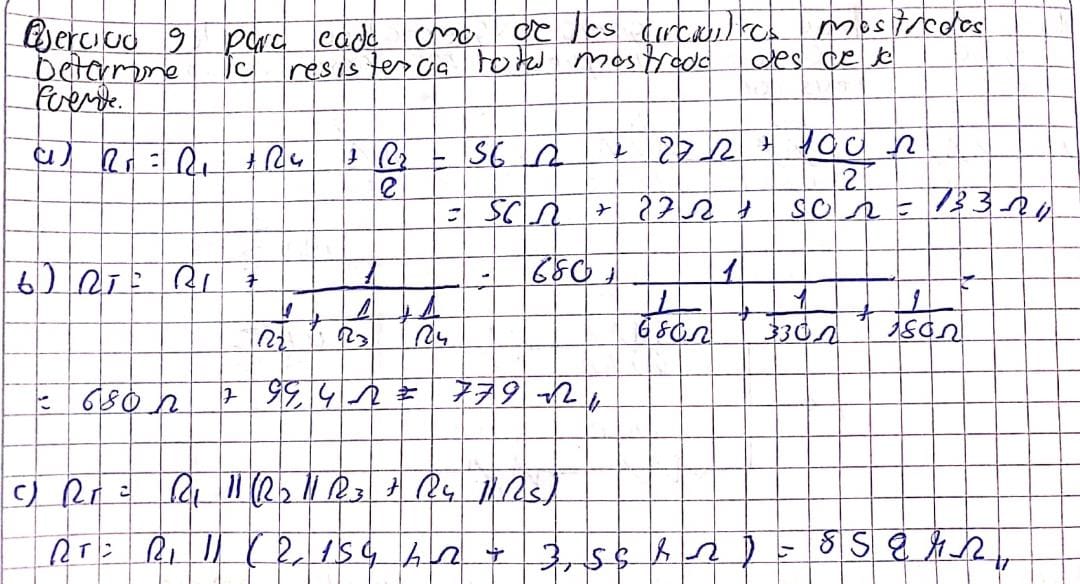 Ejercicio 9 para cada uno de los circuitos mostrados
Determine la resistencia total mostrada desde la
Fuente.
a) RT = R1 + R4 + R2/2 = 56 Ω + 27 Ω + 100 Ω/2
= 56 Ω + 27 Ω + 50 Ω = 133 Ω,,
b) RT = R1 + 1/(1/R2 + 1/R3 + 1/R4) = 680 + 1/(1/680Ω + 1/330Ω + 1/180Ω) =
= 680 Ω + 99,4 Ω = 779 Ω,,
c) RT = R1 || (R2 || R3 + R4 || R5)
RT = R1 || (2,154 kΩ + 3,55 kΩ) = 852 kΩ,,